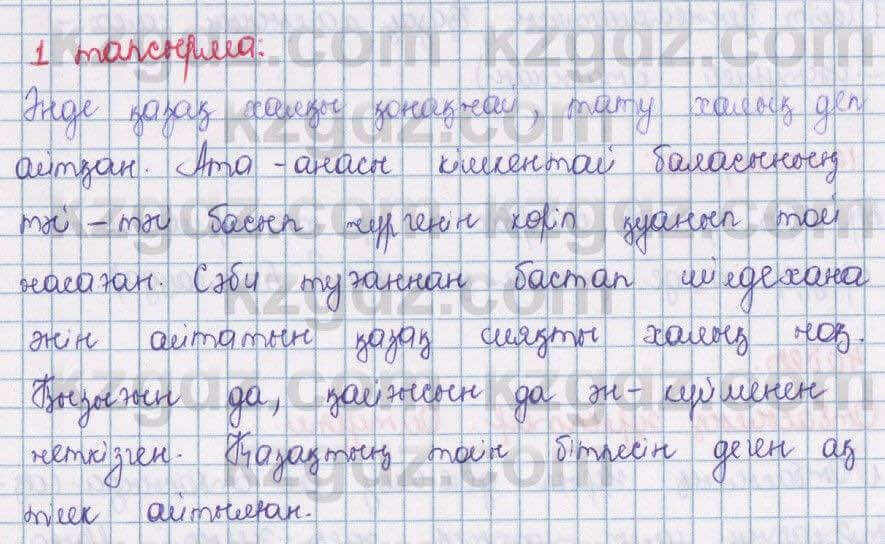 1 тапсырма:
Әнде қазақ халқы қонақжай, тату халық деп
айтқан. Ата-анасы кішкентай баласының
тәй-тәй басып жүргенін көріп қуанып той
жасаған. Сәби туғаннан бастап шілдехана
әнін айтатын қазақ сияқты халық жоқ.
Қызығын да, қайғысын да ән-күйменен
жеткізген. Қазақтың тойн бітпесін деген ақ
тілек айтылған.
kzgdz.com